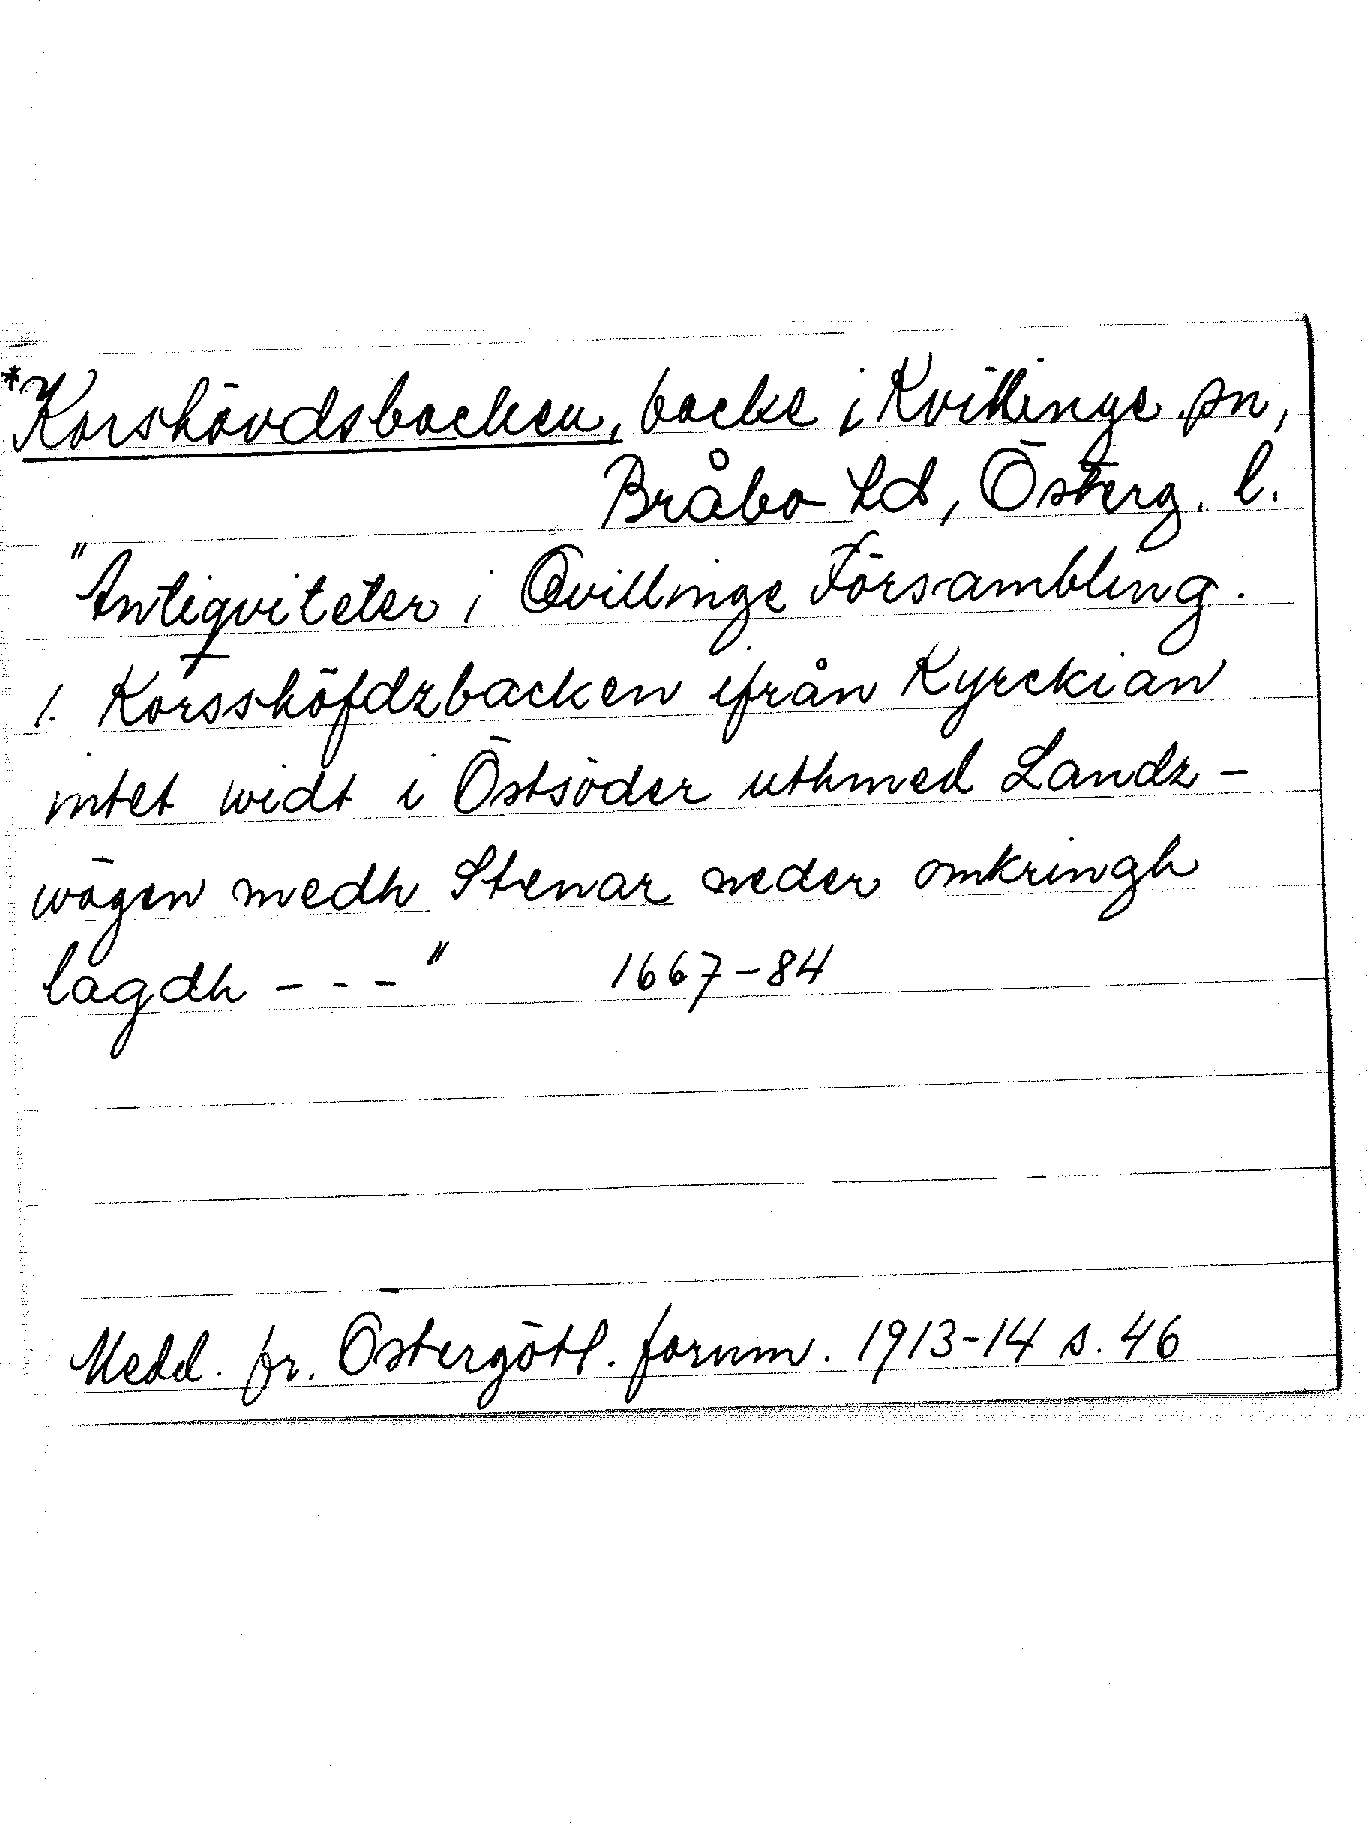 *Korshövdsbacken, backe i Kvillinge sn,
Bråbo hd, Österg. l.
"Antiqviteter i Qvillinge Försambling.
1. Korsshöfdzbacken ifrån Kyrckian
intet widt i Östsöder uthmed Landz-
wägen medh Stenar neder omkringh
lagdh - - - " 1667-84
Medd. fr. Östergötl. fornm. 1913-14 s. 46